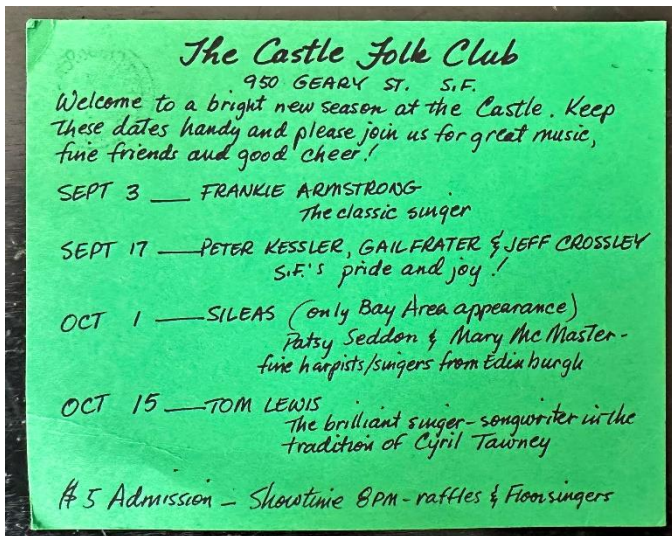 The Castle Folk Club
950 GEARY ST. S.F.
Welcome to a bright new season at the Castle. Keep
these dates handy and please join us for great music,
fine friends and good cheer!
SEPT 3 — FRANKIE ARMSTRONG
The classic singer
SEPT 17 — PETER KESSLER, GAIL FRATER & JEFF CROSSLEY
S.F.'s pride and joy!
OCT 1 — SILEAS (only Bay Area appearance)
Patsy Seddon & Mary McMaster -
fine harpists/singers from Edinburgh
OCT 15 — TOM LEWIS
The brilliant singer-songwriter in the
tradition of Cyril Tawney
$5 Admission - Showtime 8PM - raffles & Floorsingers